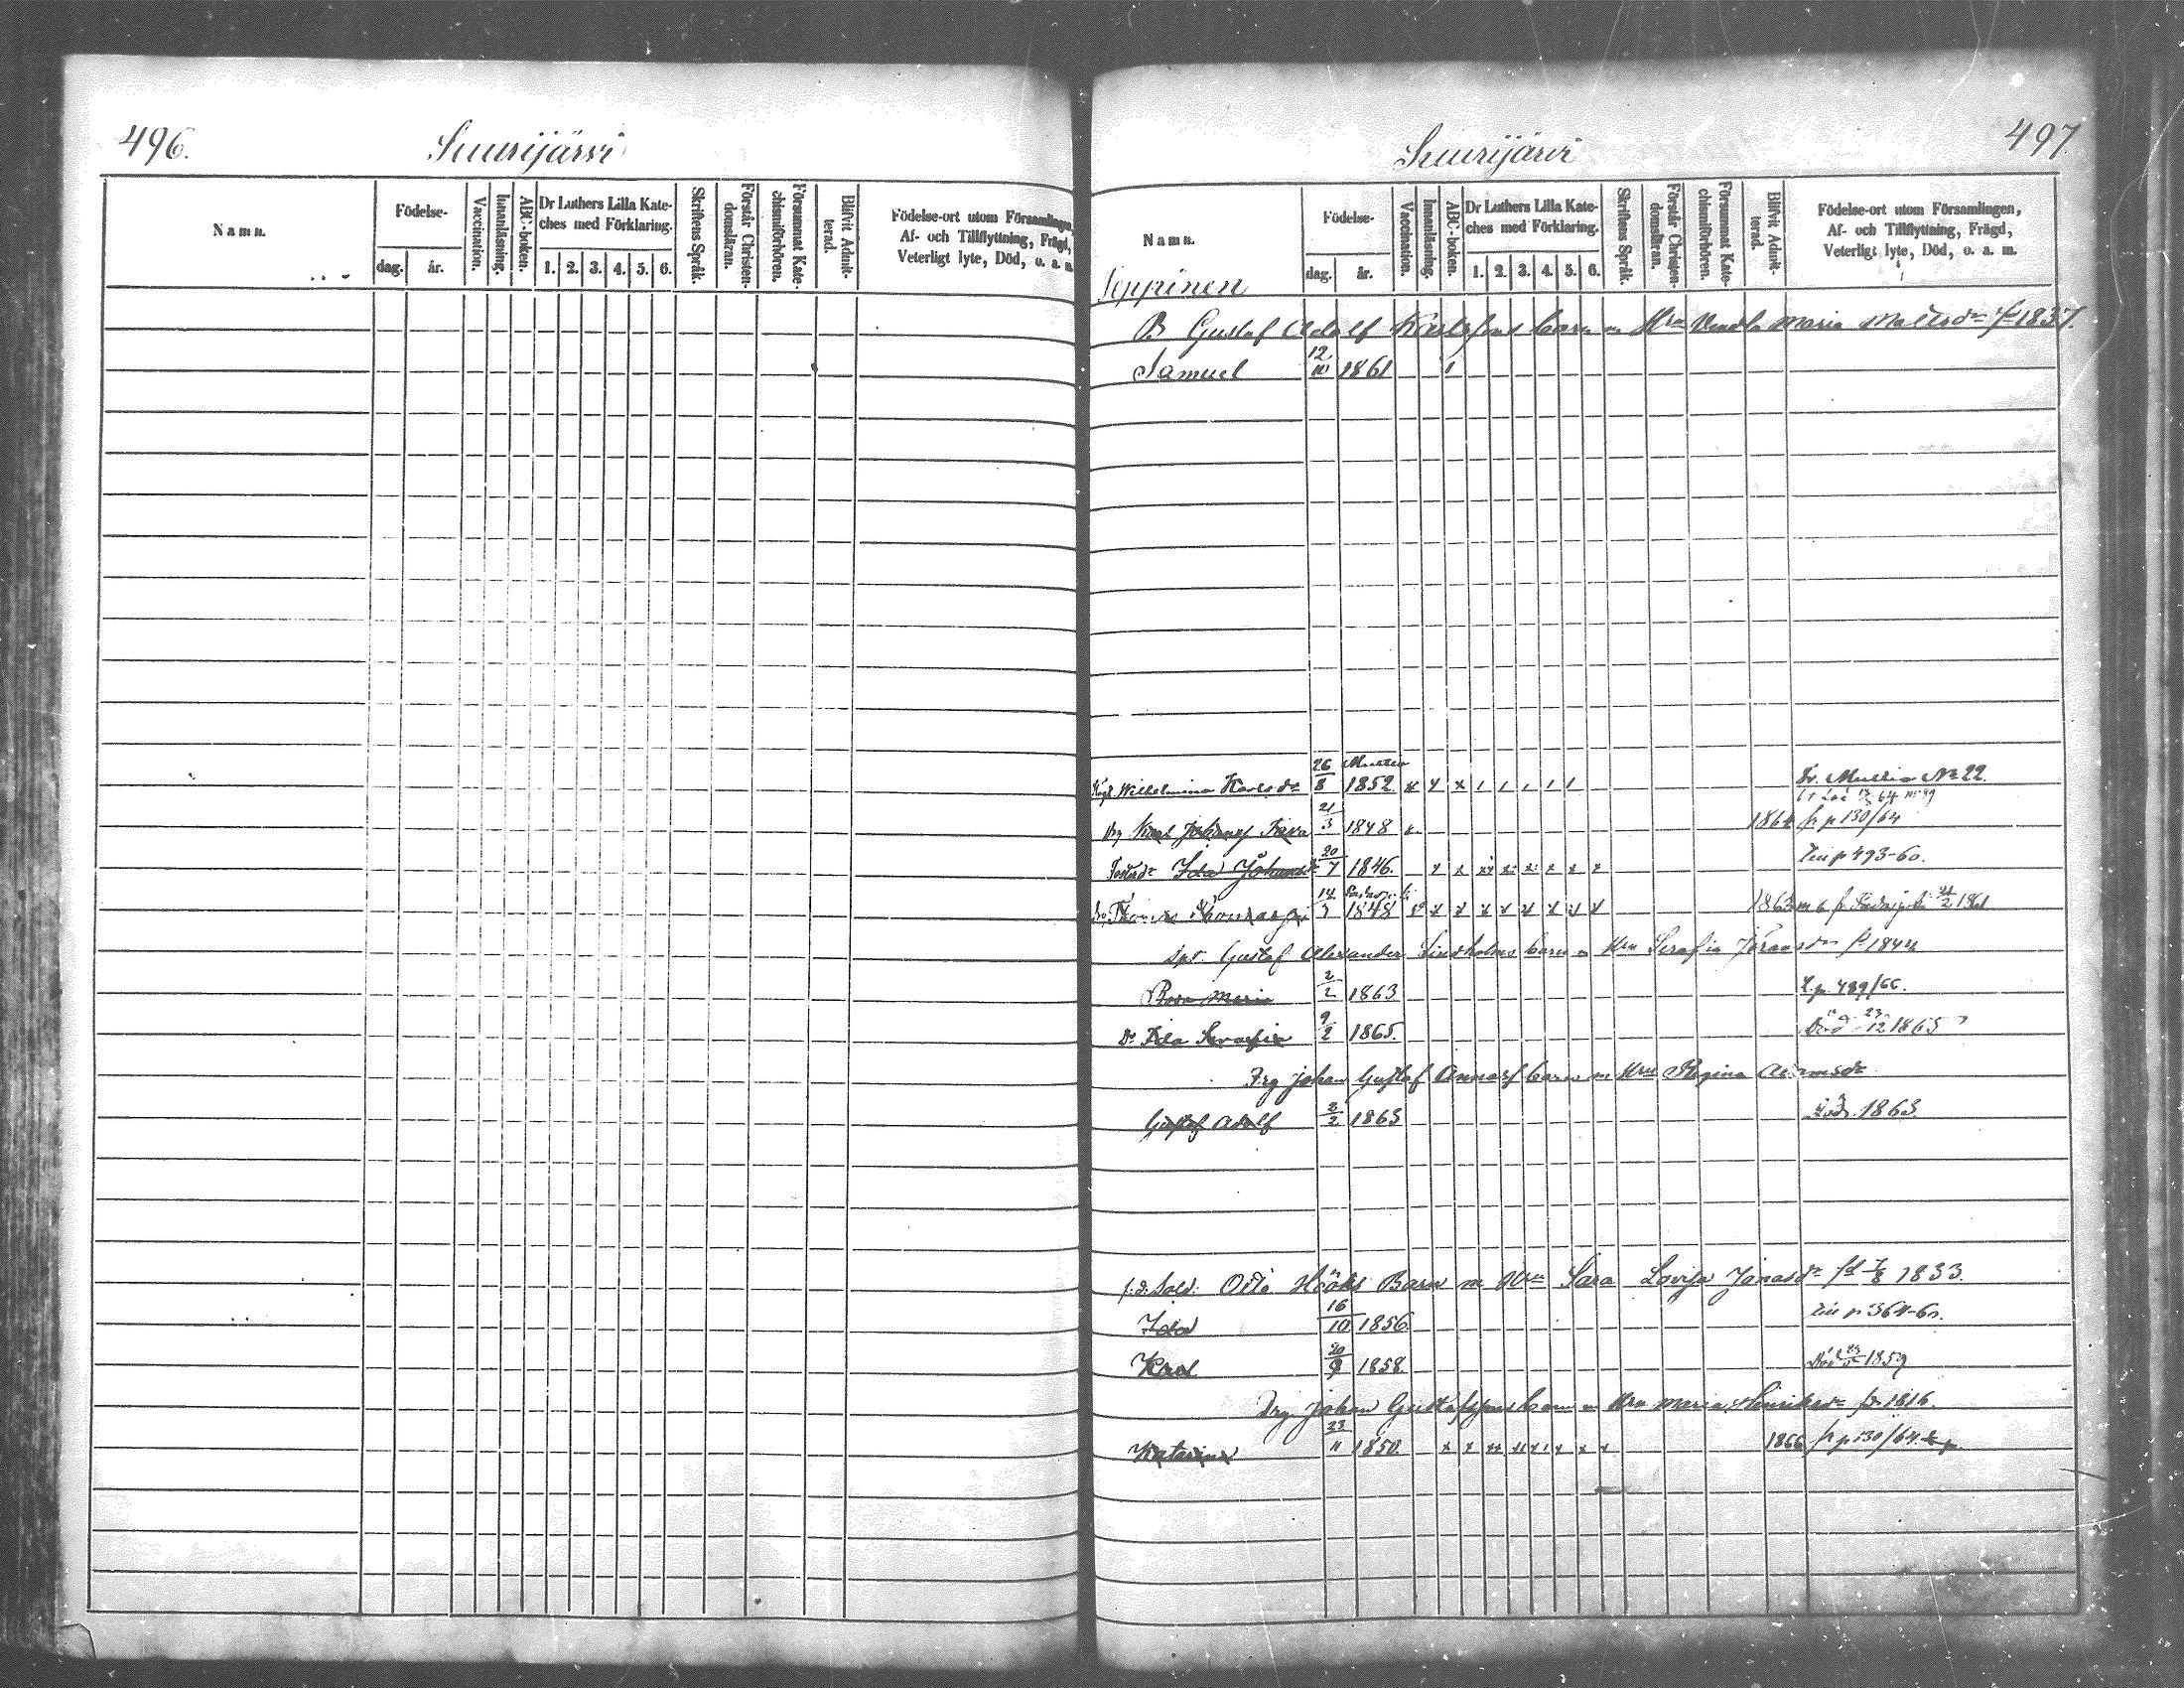 496.
Suurijärvi
Namn.
Födelse-
dag. år.
Vaccination.
Innanläsning.
ABC-boken.
Dr Luthers Lilla Kate-
ches med Förklaring.
1. 2. 3. 4. 5. 6.
Skriftens Språk.
Förstår Christen-
domsläran.
Försummat Kate-
chismiförhören.
Blifvit Admit-
terad.
Födelse-ort utom Församlingen,
Af- och Tillflyttning, Frägd,
Veterligt lyte, Död, o. a. m.
497.
Suurijärvi
Namn.
Födelse-
dag. år.
Vaccination.
Innanläsning.
ABC-boken.
Dr Luthers Lilla Kate-
ches med Förklaring.
1. 2. 3. 4. 5. 6.
Skriftens Språk.
Förstår Christen-
domsläran.
Försummat Kate-
chismiförhören.
Blifvit Admit-
terad.
Födelse-ort utom Församlingen,
Af- och Tillflyttning, Frägd,
Veterligt lyte, Död, o. a. m.
Seppinen
B Gustaf Adolf Karlssons barn m Hru Vendla Maria Mattsdr 1837.
Samuel 12/10 1861 1
Wilhelmina Karlsdr 26/8 1852 x x x 1 1 1 1 1 Fr. Mullia No 22.
Karl Johansf 21/3 1848 1864 fr p 130/64
Ida Johansdr 20/7 1846. x x x x x x x x p 493-60.
14/3 1848 x x x x x x x x 1863
Gustaf Alexander Lindholms barn m Hru Serafia Göransdr 1844
Rosa Maria 2/2 1863 p. 489/66.
Dr Ida Serafia 9/2 1865. Död 23/12 1865
Johan Gustaf barn m Hru Regina Adamsdr
Gustaf Adolf 2/2 1863 1863.
f.d. Sold. Otto Hööks Barn m Hru Sara Lovisa Jonasdr fd 7/8 1833.
Ida 16/10 1856 p 364-60.
Karl 20/9 1858. Död 1859
Drg Johan Gustafssons barn m Hru Maria Henriksdr 1816.
Katarina 23/11 1850. x x x x x x x x 1866 fr p 130/64.